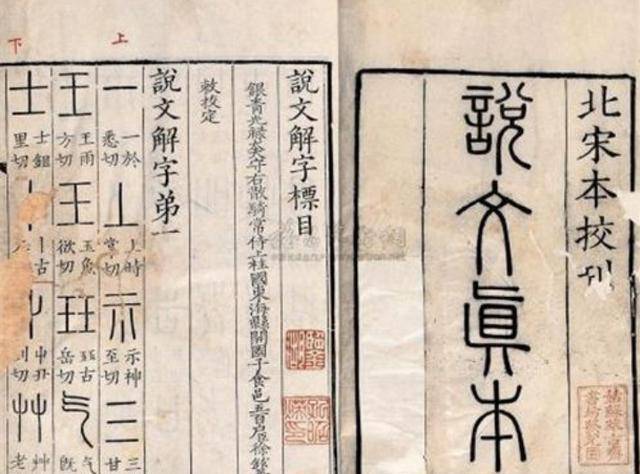 北宋本挍刋
說文眞本
說文解字標目
銀青光祿大夫守右散騎常侍上柱國東海縣開國子食邑五百户臣徐鉉
敕挍定
說文解字弟一
上
一 一於悉切 丄 上時掌切 示 示神至切 三 三甘
王 王雨方切 王 玉魚欲切 玨 玨古岳切 气 气旣
下
士 士鉏里切 丨 丨古 屮 屮丑列切 艸 老